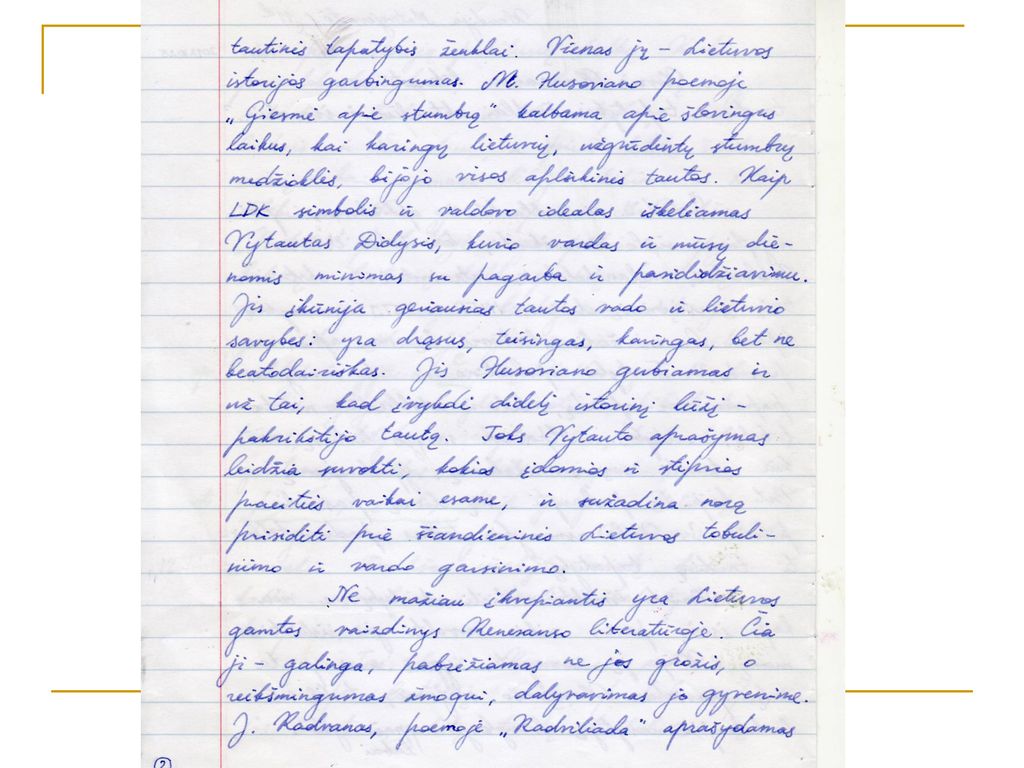 tautinės tapatybės ženklai. Vienas jų – Lietuvos
istorijos garbingumas. M. Husoviano poemoje
„Giesmė apie stumbrą" kalbama apie šlovingus
laikus, kai karingų lietuvių, užgrūdintų stumbrų
medžioklės, bijojo visos aplinkinės tautos. Kaip
LDK simbolis ir valdovo idealas iškeliamas
Vytautas Didysis, kurio vardas ir mūsų die-
nomis minimas su pagarba ir pasididžiavimu.
Jis įkūnija geriausias tautos vado ir lietuvio
savybes: yra drąsus, teisingas, karingas, bet ne
beatodairiškas. Jis Husoviano gerbiamas ir
už tai, kad įvykdė didelį istorinį lūžį –
pakrikštijo tautą. Toks Vytauto aprašymas
leidžia suvokti, kokios įdomios ir stiprios
praeities vaikai esame, ir sužadina norą
prisidėti prie šiandieninės Lietuvos tobuli-
nimo ir vardo garsinimo.
Ne mažiau įkvepiantis yra Lietuvos
gamtos vaizdinys Renesanso literatūroje. Čia
ji – galinga, pabrėžiamas ne jos grožis, o
reikšmingumas žmogui, dalyvavimas jo gyvenime.
J. Radvanas, poemoje „Radviliada" aprašydamas
2